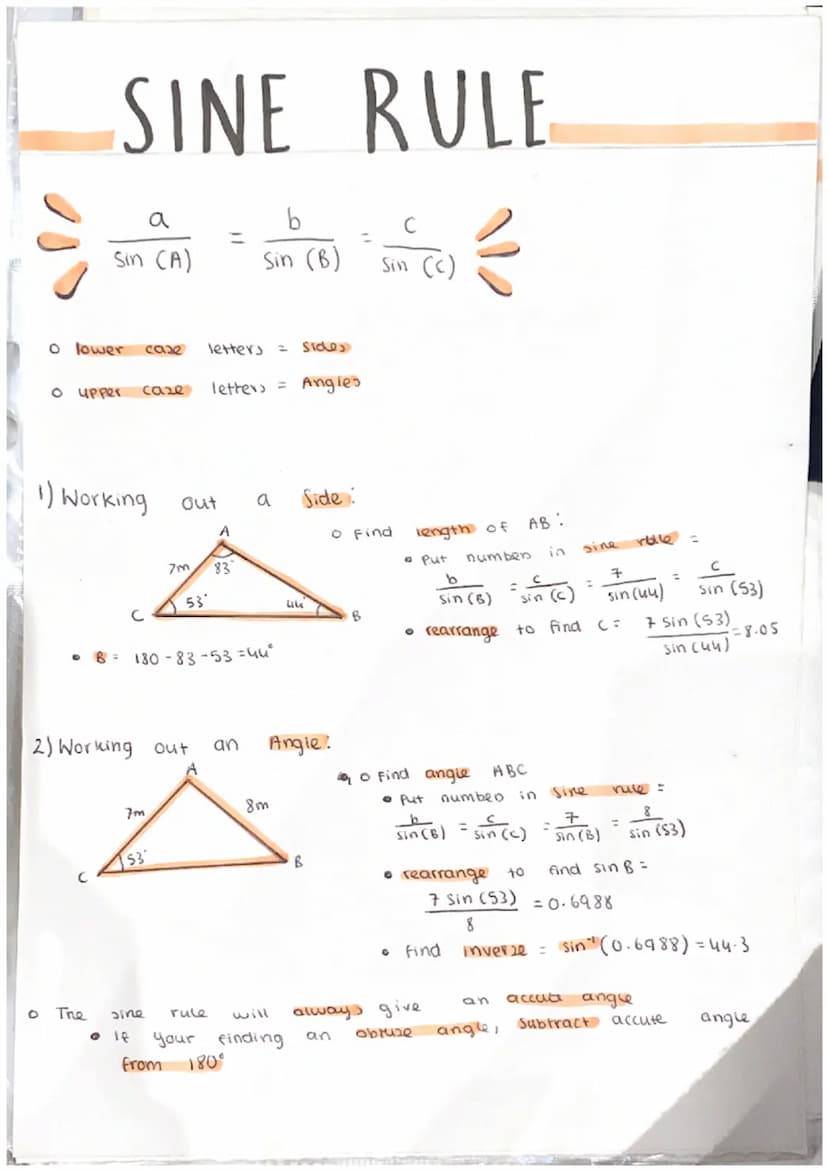 SINE RULE
a/sin (A) = b/sin (B) = c/sin (C)
o lower case letters = sides
o upper case letters = Angles
1) Working out a side:
A
7m 83°
53° 44°
C B
• B = 180 - 83 - 53 = 44°
o Find length of AB:
• Put numbers in sine rule =
b/sin (B) = c/sin (C) = 7/sin (44) = c/sin (53)
• rearrange to find c = 7 sin (53)/sin (44) = 8.05
2) Working out an Angle:
A
7m 8m
53°
C B
o Find angle ABC
• Put numbers in sine rule =
b/sin (B) = c/sin (C) = 7/sin (B) = 8/sin (53)
• rearrange to find sin B =
7 sin (53)/8 = 0.6988
• find inverse = sin⁻¹ (0.6988) = 44.3
o The sine rule will always give an accute angle
• If your finding an obtuse angle, subtract accute angle
from 180°